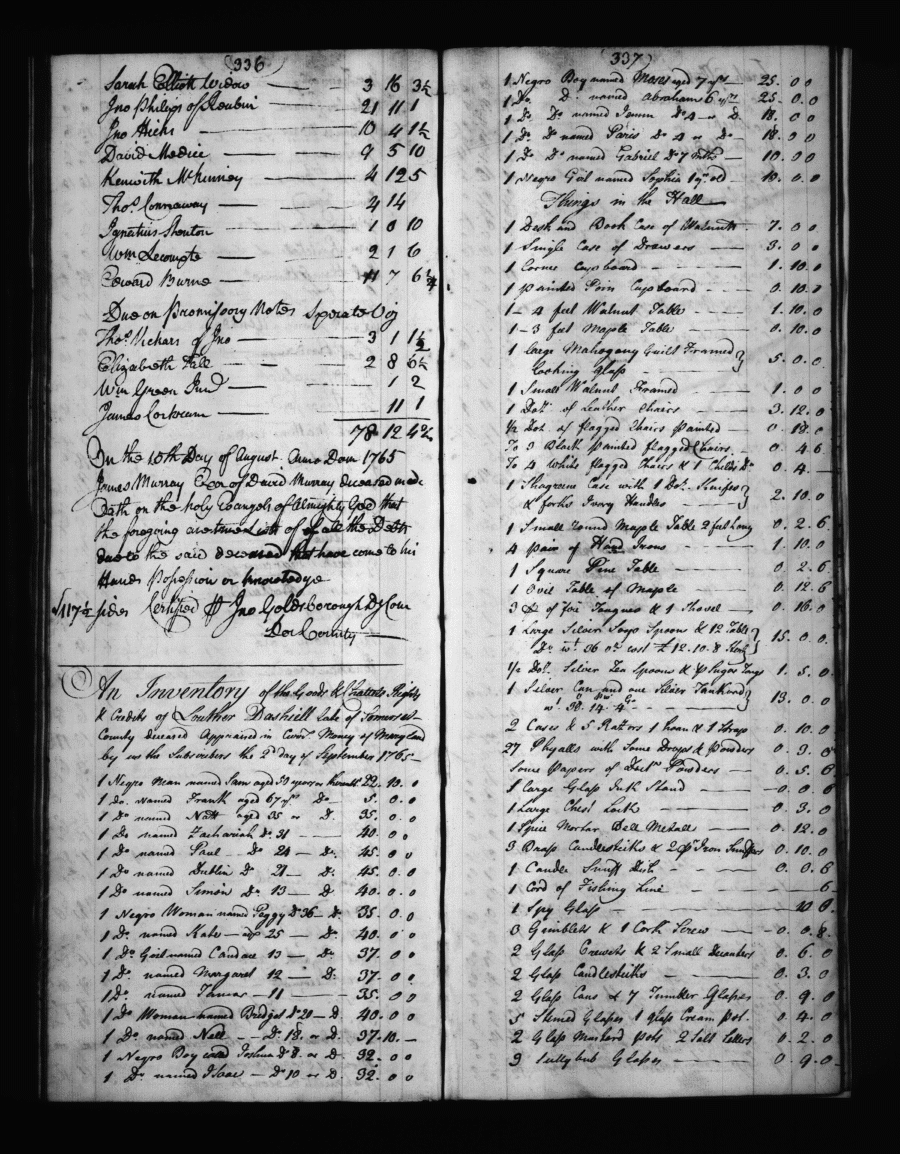 (336)
Sarah Elliott Widow 3 16 3½
Jno Philips of Reubin 21 11 1
Jno Hicks 10 4 1½
David Medice 9 5 10
Kenwith McKinney 4 12 5
Thos. Connaway 4 14
Ignatius Shenton 1 0 10
Wm. Lecompte 2 1 6
Edward Burne 7 6¼
Due on Promissory Notes Sperate Viz
Thos. Vickars of Jno 3 1 1½
Elizabeth Fell 2 8 6½
Wm Green Junr 1 2
James Corkream 11 1
78 12 4¾
On the 10th Day of August Anno Dom 1765
James Murray Exor of David Murray deceased made
Oath on the holy Evangels of Almighty God that
the foregoing are true Lists of all the Debts
due to the said deceased that have come to his
Hands Possession or knowledge
Certified Jno Goldsborough Dy Com
Dor County
An Inventory of the Goods & Chattels Rights
& Credits of Louther Dashiell Late of Somerset
County deceased Appraised in Curr. Money of Maryland
by us the Subscribers the 2d day of September 1765
1 Negro Man named Sam aged 50 years or thereabt. 22. 10. 0
1 Do. named Frank aged 67 yrs Do 5. 0. 0
1 Do named Natt aged 35 or D. 35. 0. 0
1 Do named Zachariah Do 31 40. 0 0
1 Do named Paul Do 24 Do. 45. 0 0
1 Do named Dublin Do 21 D. 45. 0 0
1 Do named Simon Do 13 D. 40. 0. 0
1 Negro Woman named Peggy Do 36 D. 35. 0. 0
1 Do. named Kate 25 D. 40. 0 0
1 Do Girl named Candace 13 Do 37. 0 0
1 Do. named Margaret 12 D. 37. 0 0
1 Do. named Tamar 11 35. 0 0
1 Do Woman named Bridget Do 20 D. 40. 0 0
1 Do. named Nell Do 18. or D. 37. 10.
1 Negro Boy named Joshua Do 8. or D. 32. 0 0
1 Do. named Isaac Do 10 or D. 32. 0 0
337)
1 Negro Boy named Moses aged 7 yrs 25. 0 0
1 Do. D. named Abraham 6 yrs 25. 0. 0
1 Do Do named Do 4 or D. 18. 0 0
1 Do. Do named Paris Do 4 or Do 18. 0 0
1 Do. Do named Gabriel Do 7 Mths 10. 0 0
1 Negro Girl named Sophia 1 yr. old 10. 0. 0
Things in the Hall
1 Desk and Book Case of Walnutt 7. 0 0
1 Single Case of Drawers 3. 0 0
1 Corner Cupboard 1. 10. 0
1 painted Corn Cupboard 0. 10. 0
1 - 4 feet Walnut Table 1. 10. 0
1 - 3 feet Maple Table 0. 10. 0
1 large Mahogany Guilt Framed
Looking Glass 5. 0. 0
1 Small Walnut Framed 1. 0 0
1 Doz. of Leather Chairs 3. 12. 0
½ Doz of flagged Chairs Painted 0. 18. 0
To 3 Black painted flagged Chairs 0. 4 6
To 4 White flagged Chairs & 1 Childs Do 0. 4.
1 Shagreene Case with 1 Doz. Knifes
& forks Ivory Handles 2. 10. 0
1 Small round Maple Table 2 feet long 0. 2. 6
4 pair of Hand Irons 1. 10. 0
1 Square Pine Table 0. 2. 6
1 Ovil Table of Maple 0. 12. 6
3 pr of fire Tongues & 1 Shovel 0. 16. 0
1 Large Silver Soop Spoons & 12 Table
Do. wt. 36 oz. cost £12.10.8 15. 0. 0
½ Doz. Silver Tea Spoons & pr Sugar Tongs 1. 5. 0
1 Silver Can and one Silver Tankard
wt. 38. 14. 4 13. 0 0
2 Cases & 5 Rators 1 hoan & 1 Strap 0. 10. 0
27 Phyalls with Some Drops & Powders 0. 3. 0
Some Papers of Doctr. Powders 0. 5. 6
1 Large Glass Ink Stand 0. 0 6
1 Large Chest Lock 0. 3. 0
1 Spice Morter Bell Mettall 0. 12. 0
3 Brass Candlesticks & 2 pr Iron Snuffers 0. 10. 0
1 Candle Snuff Dish 0. 0. 6
1 Cord of Fishing Line 6
1 Spy Glass 10 0.
3 Gimblets & 1 Cork Screw 0. 0. 8.
2 Glass Crewits & 2 Small Decanters 0. 6. 0
2 Glass Candlesticks 0. 3. 0
2 Glass Cans & 7 Tumbler Glasses 0. 9. 0
5 Stemed Glasses 1 glass Cream Pot. 0. 4. 0
2 Glass Mustard Pots 2 Salt Sellers 0. 2. 0
3 Sullybub Glasses 0. 9. 0